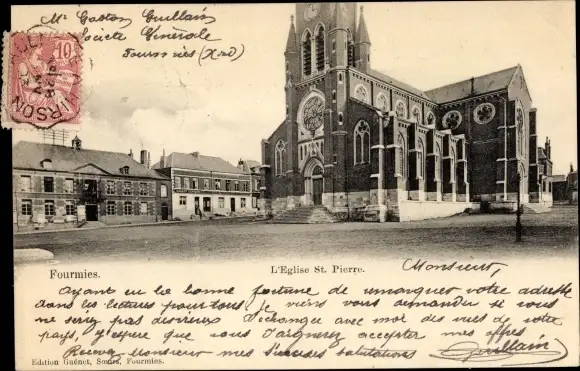 Mr Gaston Guillain
Société Générale
Fourmies (Nord)
10
VIERSON
Fourmies.
L'Eglise St. Pierre.
Monsieur,
Ayant eu la bonne fortune de remarquer votre adresse
dans les lectures pour tous, je viens vous demander si vous
ne seriez pas désireux d'échanger avec moi des vues de votre
pays, j'espère que vous daignerez accepter mes offres
Recevez Monsieur mes sincères salutations
Guillain
Edition Guénet, Sœurs, Fourmies.